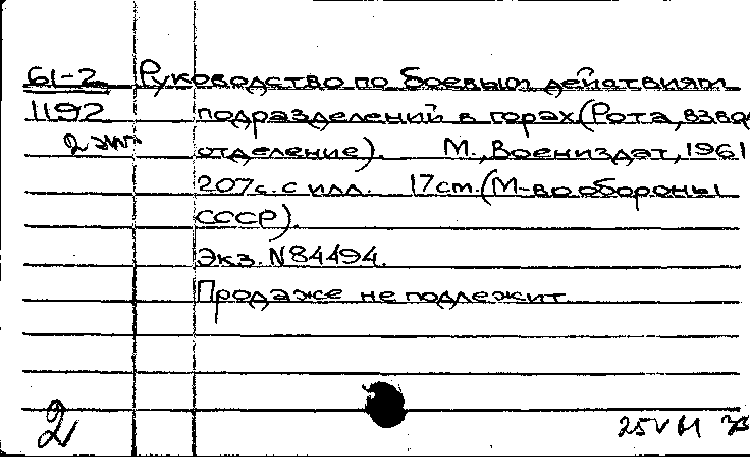 61-2 Руководство по боевым действиям
1192 подразделений в горах (Рота, взвод
2 экз отделение). М., Воениздат, 1961
207с. с илл. 17см. (М-во обороны
СССР).
Экз. N84494.
Продаже не подлежит
2
25 V 61